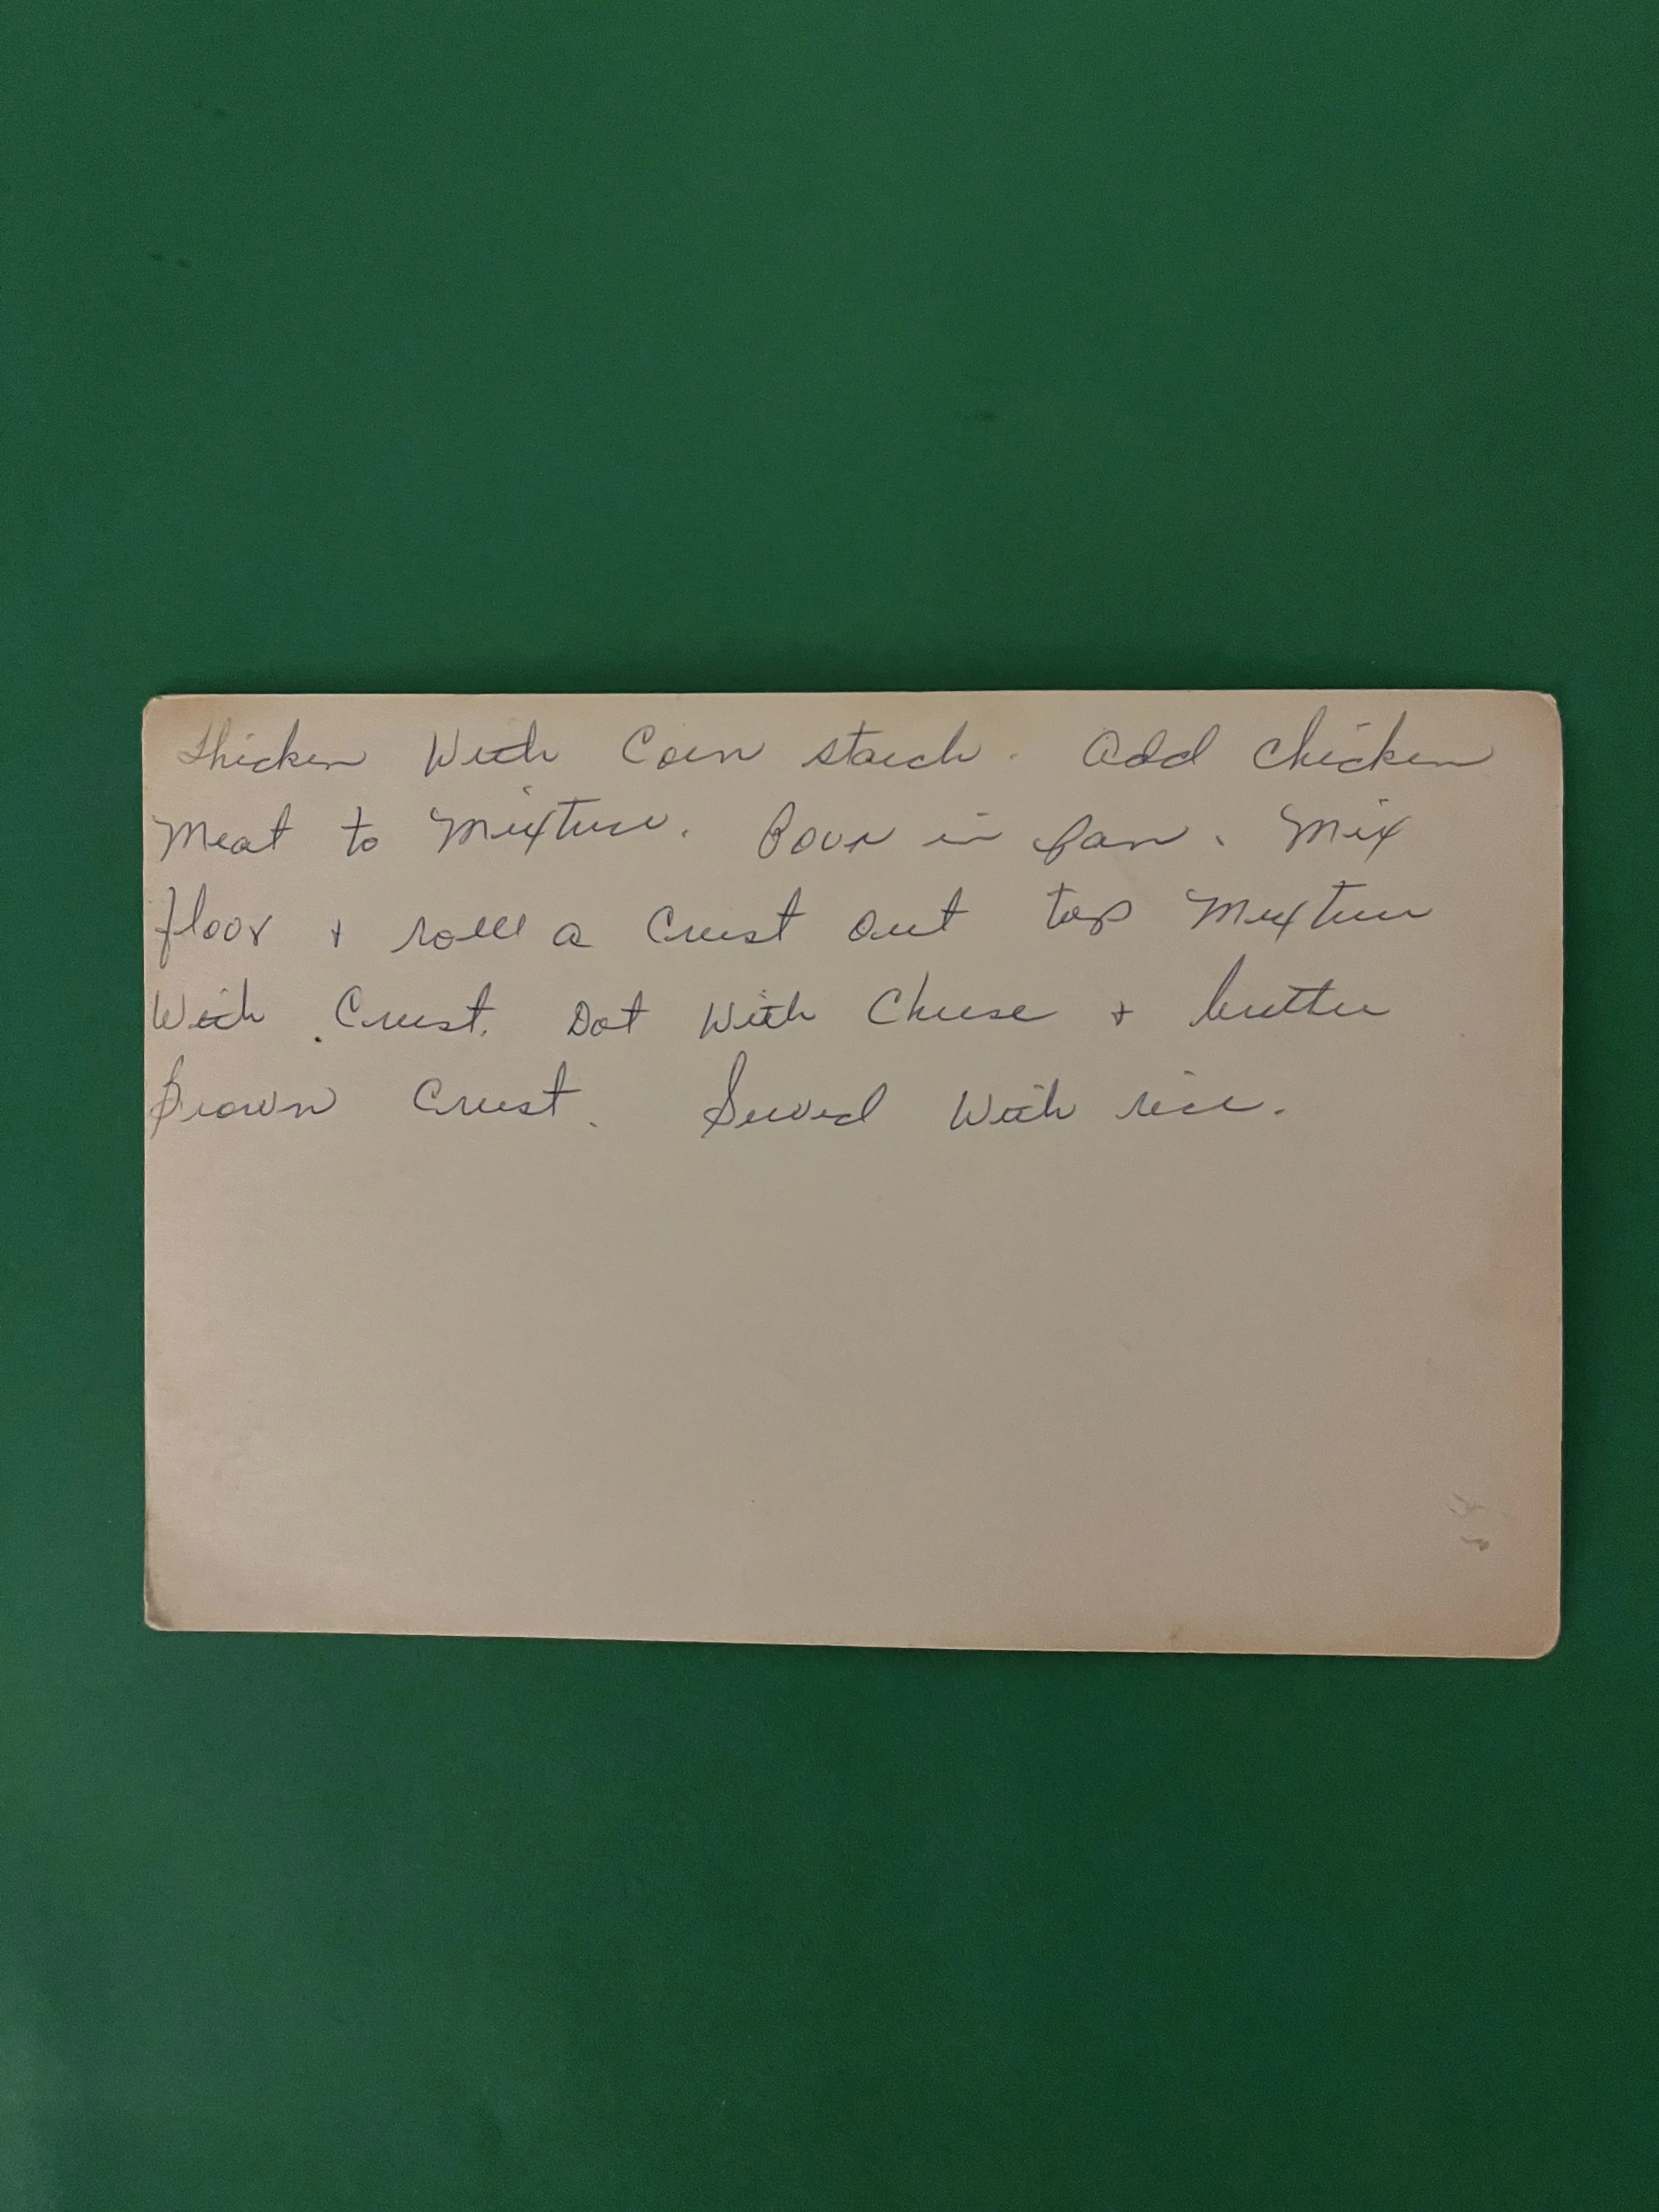 Thicken With Corn starch. Add chicken
Meat to Mixture. Pour in pan. Mix
floor + roll a Crust out top Mixture
With Crust. Dot With Cheese + butter
Brown Crust. Served With rice.